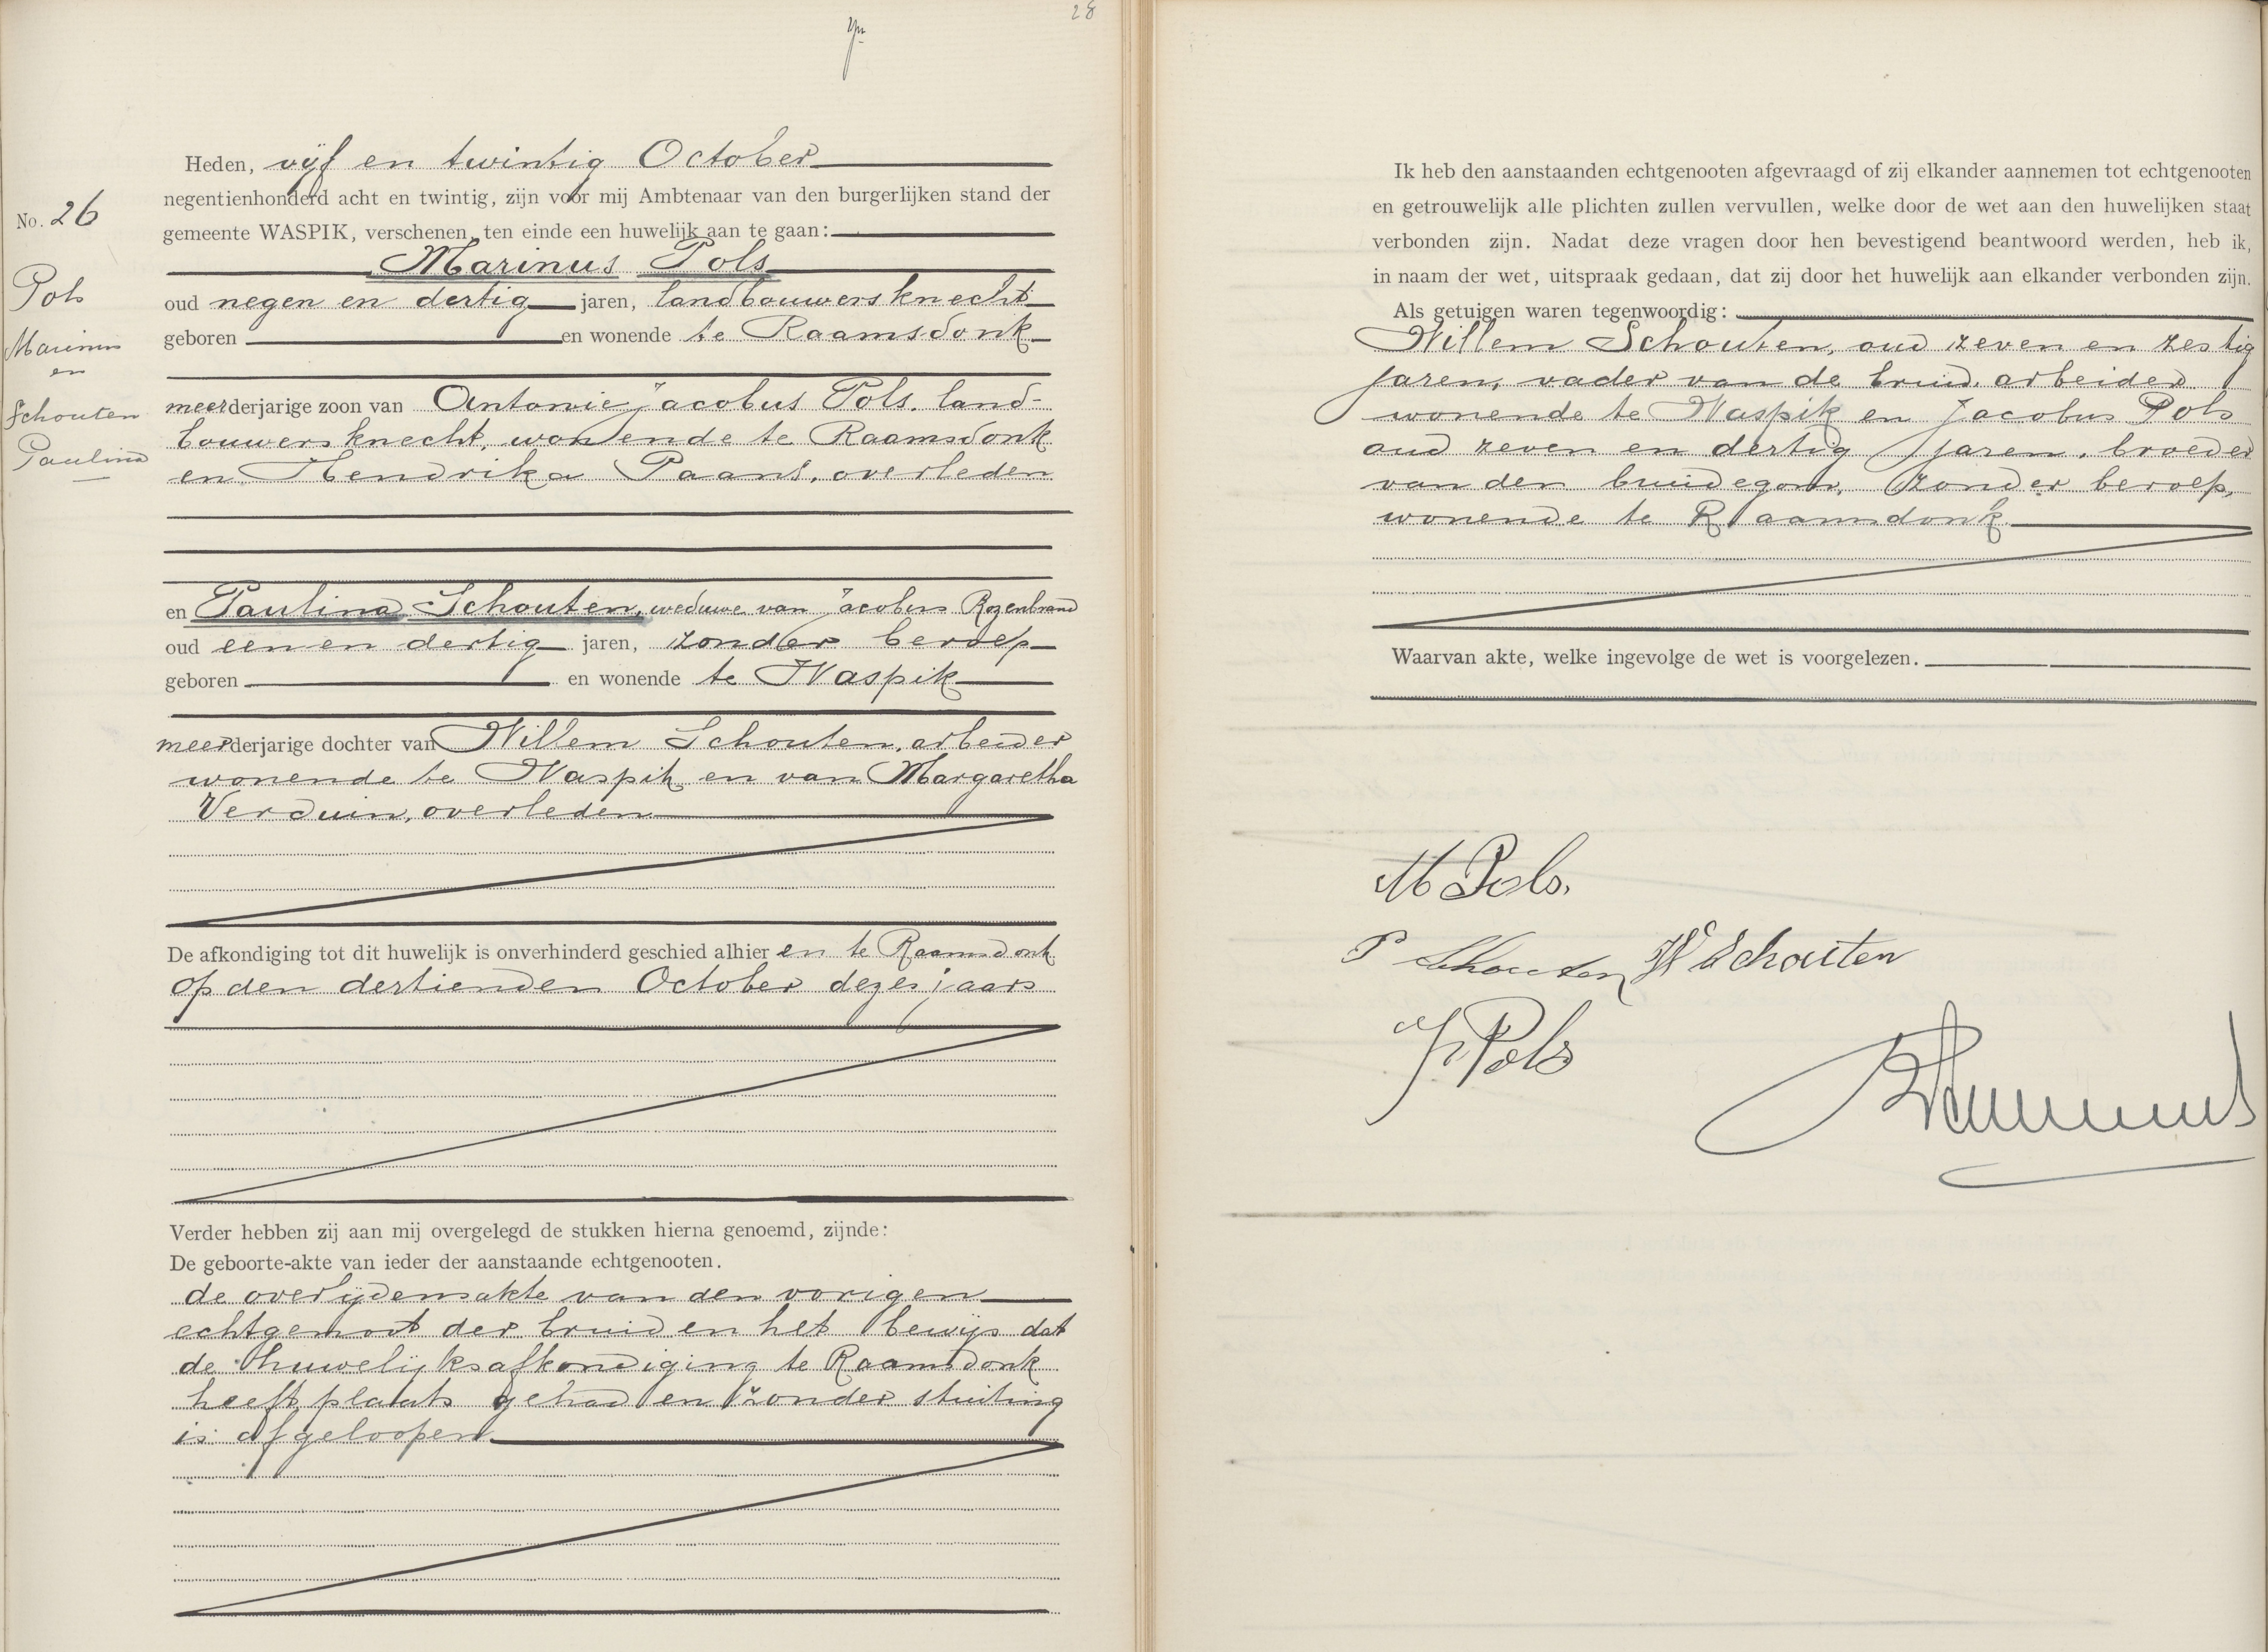 28
Heden, vijf en twintig October
negentienhonderd acht en twintig, zijn voor mij Ambtenaar van den burgerlijken stand der
No. 26
gemeente WASPIK, verschenen, ten einde een huwelijk aan te gaan:
Marinus Pols
Pols
Marinus
en
Schouten
Paulina
oud negen en dertig jaren, landbouwersknecht
geboren en wonende te Raamsdonk
meerderjarige zoon van Antonie Jacobus Pols, land-
bouwersknecht, wonende te Raamsdonk
en Hendrika Paans, overleden
en Paulina Schouten, weduwe van Jacobus Rozenbrand
oud een en dertig jaren, zonder beroep
geboren en wonende te Waspik
meerderjarige dochter van Willem Schouten, arbeider
wonende te Waspik en van Margaretha
Verduin, overleden
De afkondiging tot dit huwelijk is onverhinderd geschied alhier en te Raamsdonk
op den dertienden October dezes jaars
Verder hebben zij aan mij overgelegd de stukken hierna genoemd, zijnde:
De geboorte-akte van ieder der aanstaande echtgenooten.
de overlijdensakte van den vorigen
echtgenoot der bruid en het bewijs dat
de huwelijksafkondiging te Raamsdonk
heeft plaats gehad en zonder stuiting
is afgeloopen
Ik heb den aanstaanden echtgenooten afgevraagd of zij elkander aannemen tot echtgenooten
en getrouwelijk alle plichten zullen vervullen, welke door de wet aan den huwelijken staat
verbonden zijn. Nadat deze vragen door hen bevestigend beantwoord werden, heb ik,
in naam der wet, uitspraak gedaan, dat zij door het huwelijk aan elkander verbonden zijn.
Als getuigen waren tegenwoordig:
Willem Schouten, oud zeven en zestig
jaren, vader van de bruid, arbeider
wonende te Waspik en Jacobus Pols
oud zeven en dertig jaren, broeder
van den bruidegom, zonder beroep,
wonende te Raamsdonk
Waarvan akte, welke ingevolge de wet is voorgelezen.
M Pols.
P Schouten W Schouten
J Pols